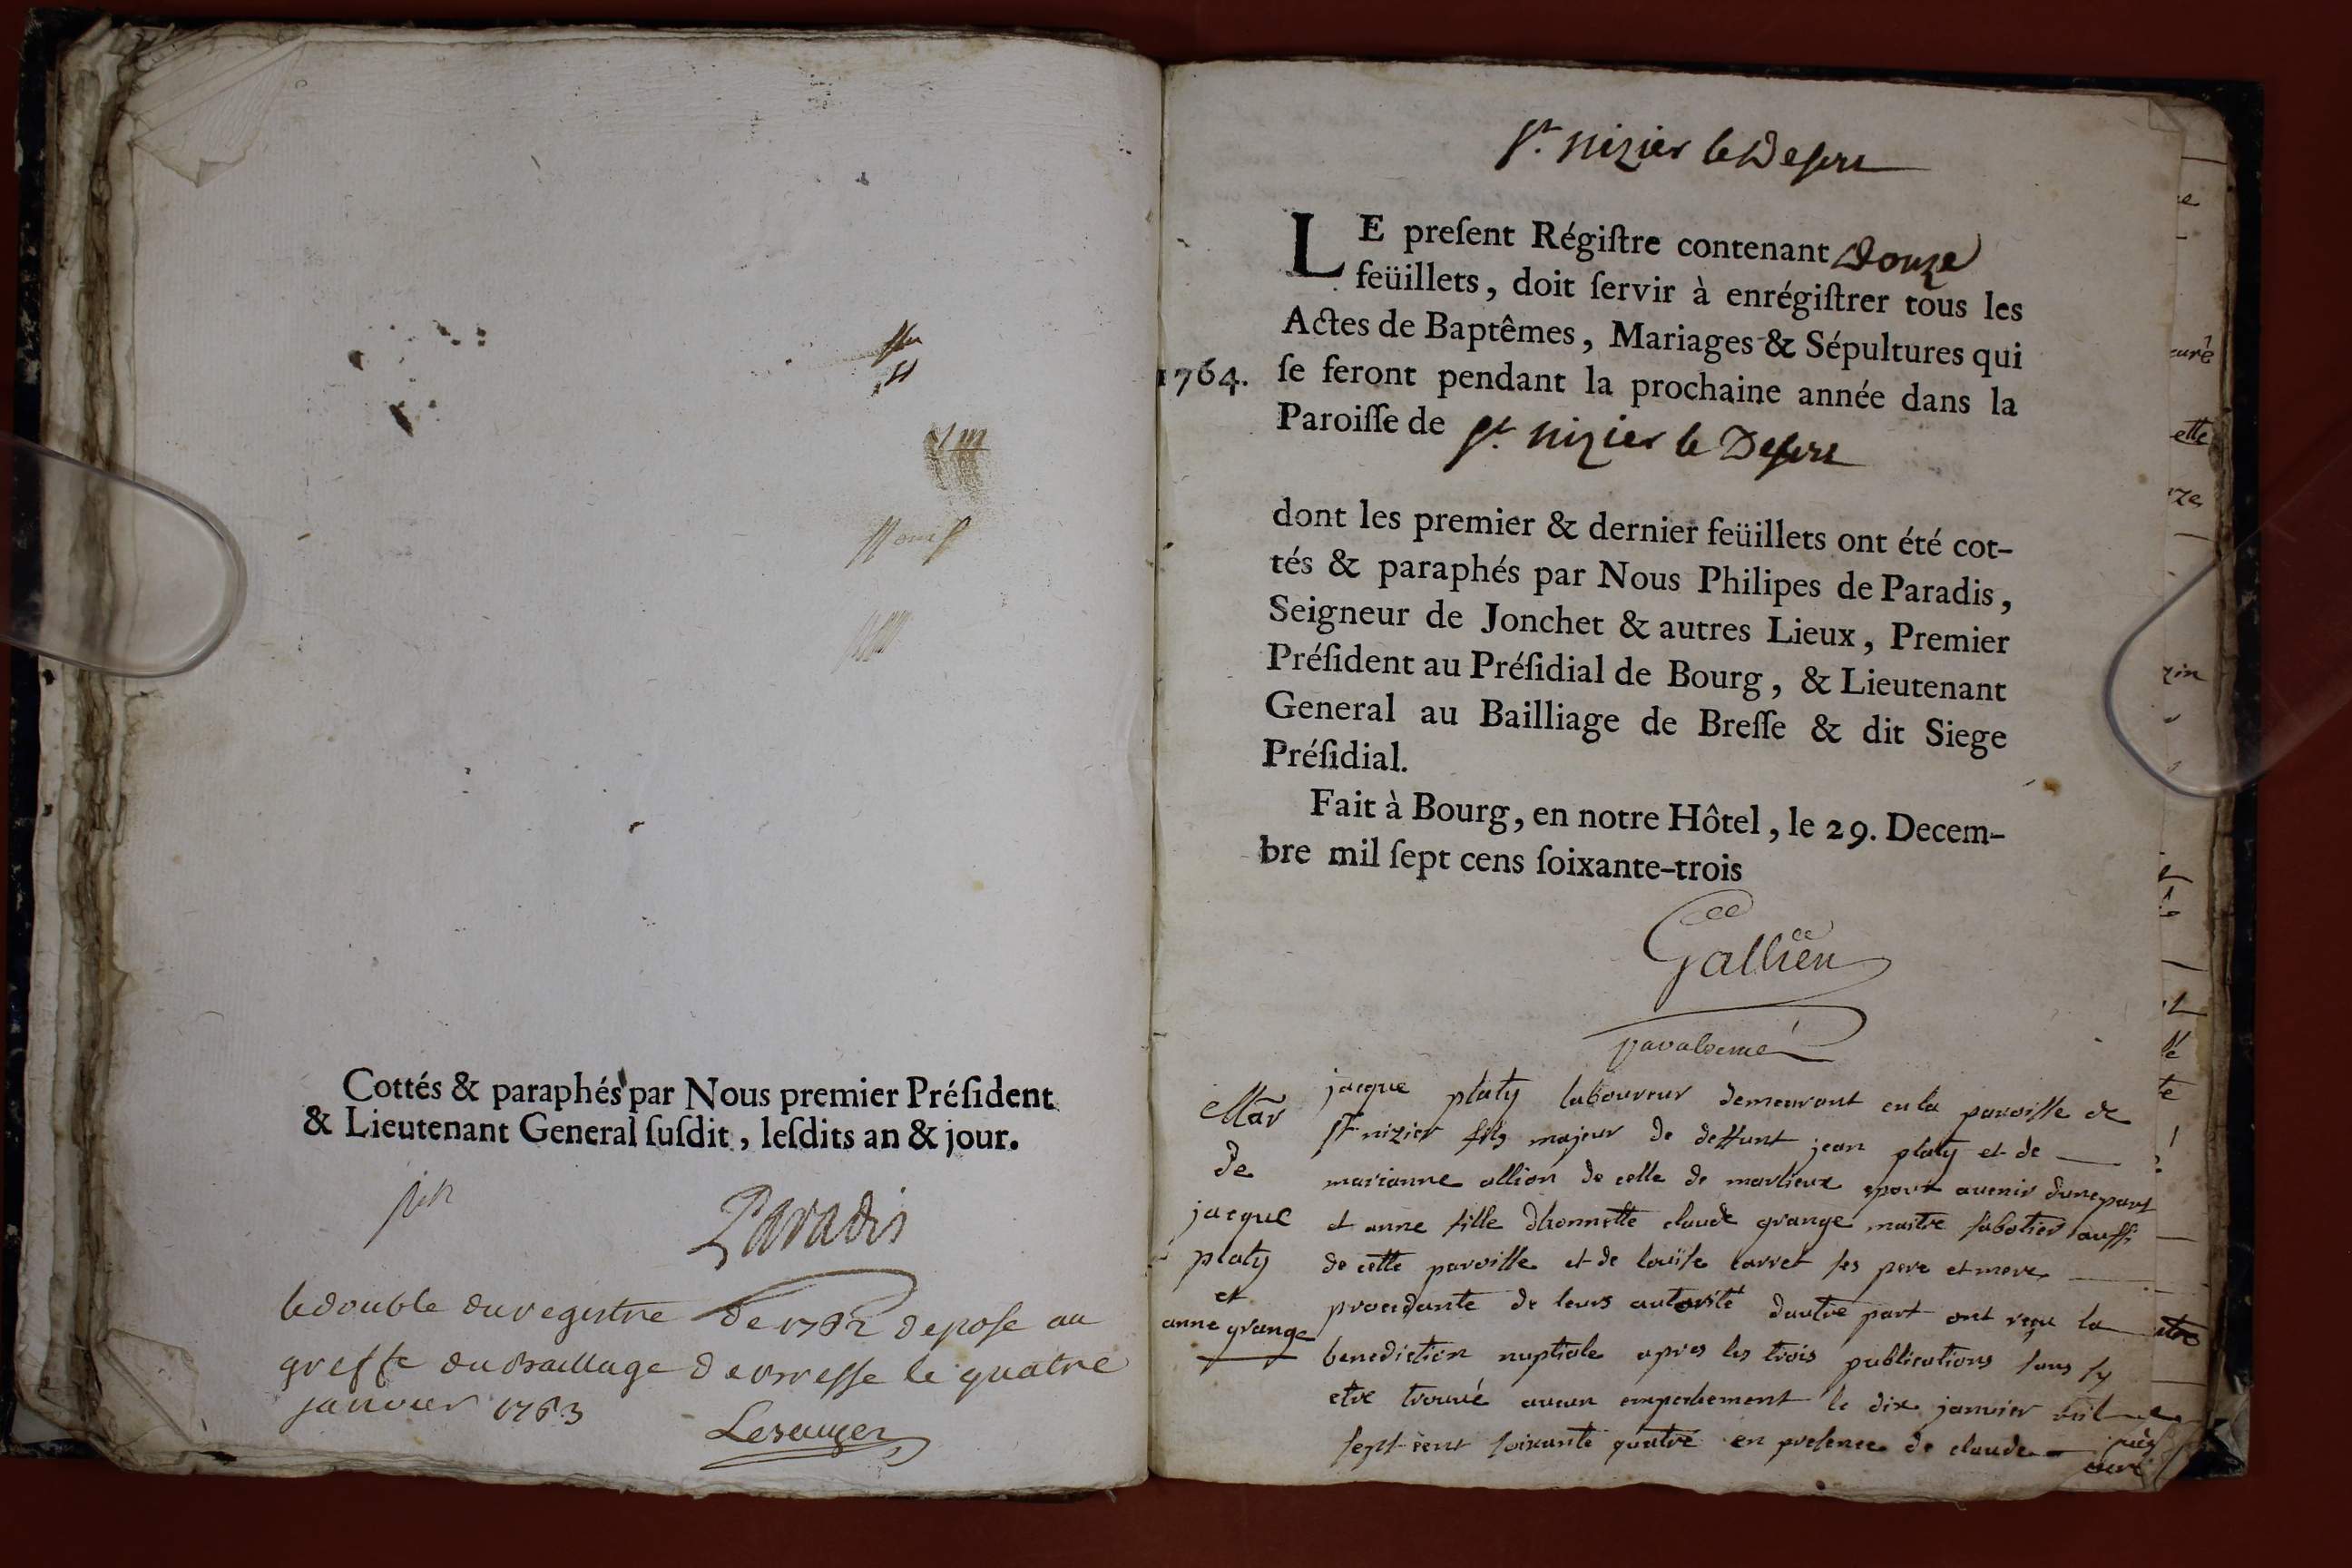 Cottés & paraphés par Nous premier Préſident
& Lieutenant General ſuſdit, leſdits an & jour.
Paradis
le double du registre de 1762 depose au
greffe du Bailliage de Bresse le quatre
janvier 1763
St. nizier le Desert
LE preſent Régiſtre contenant Douze
feüillets, doit ſervir à enrégiſtrer tous les
Actes de Baptêmes, Mariages & Sépultures qui
1764. ſe feront pendant la prochaine année dans la
Paroiſſe de St. nizier le Desert
dont les premier & dernier feüillets ont été cot-
tés & paraphés par Nous Philipes de Paradis,
Seigneur de Jonchet & autres Lieux, Premier
Préſident au Préſidial de Bourg, & Lieutenant
General au Bailliage de Breſſe & dit Siege
Préſidial.
Fait à Bourg, en notre Hôtel, le 29. Decem-
bre mil ſept cens ſoixante-trois
Gallien
Mar
de
jacque
platy
et
anne grange
jacque platy laboureur demeurant en la paroisse de
st nizier fils majeur de deffunt jean platy et de
marianne ollion de celle de marlieux epoux avenir dune part
et anne fille dhonnette claude grange maitre sabotier aussi
de cette paroisse et de louise carret ses pere et mere
procedante de leurs autorité dautre part ont reçu la
benediction nuptiale apres les trois publications sans sy
etre trouvé aucun empechement le dix janvier mil
sept cent soixante quatre en presence de claude